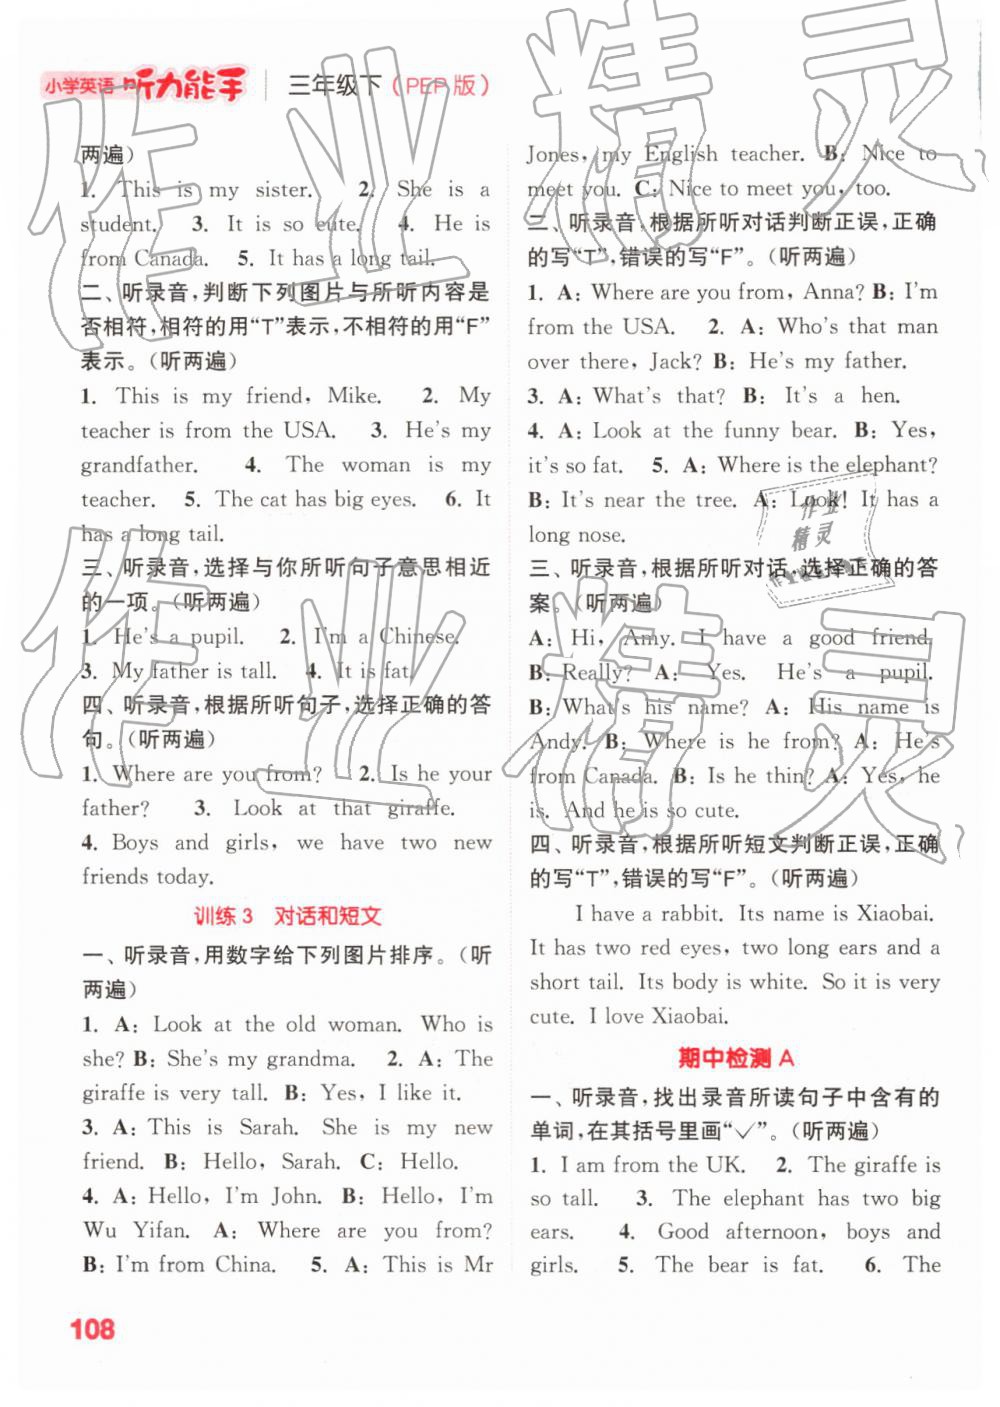 小学英语 听力能手 三年级下（PEP版）
两遍）
1. This is my sister. 2. She is a
student. 3. It is so cute. 4. He is
from Canada. 5. It has a long tail.
二、听录音，判断下列图片与所听内容是
否相符，相符的用“T”表示，不相符的用“F”
表示。（听两遍）
1. This is my friend, Mike. 2. My
teacher is from the USA. 3. He's my
grandfather. 4. The woman is my
teacher. 5. The cat has big eyes. 6. It
has a long tail.
三、听录音，选择与你所听句子意思相近
的一项。（听两遍）
1. He's a pupil. 2. I'm a Chinese.
3. My father is tall. 4. It is fat.
四、听录音，根据所听句子，选择正确的答
句。（听两遍）
1. Where are you from? 2. Is he your
father? 3. Look at that giraffe.
4. Boys and girls, we have two new
friends today.
训练3 对话和短文
一、听录音，用数字给下列图片排序。（听
两遍）
1. A: Look at the old woman. Who is
she? B: She's my grandma. 2. A: The
giraffe is very tall. B: Yes, I like it.
3. A: This is Sarah. She is my new
friend. B: Hello, Sarah. C: Hello.
4. A: Hello, I'm John. B: Hello, I'm
Wu Yifan. A: Where are you from?
B: I'm from China. 5. A: This is Mr
Jones, my English teacher. B: Nice to
meet you. C: Nice to meet you, too.
二、听录音，根据所听对话判断正误，正确
的写“T”，错误的写“F”。（听两遍）
1. A: Where are you from, Anna? B: I'm
from the USA. 2. A: Who's that man
over there, Jack? B: He's my father.
3. A: What's that? B: It's a hen.
4. A: Look at the funny bear. B: Yes,
it's so fat. 5. A: Where is the elephant?
B: It's near the tree. A: Look! It has a
long nose.
三、听录音，根据所听对话，选择正确的答
案。（听两遍）
A: Hi, Amy. I have a good friend.
B: Really? A: Yes. He's a pupil.
B: What's his name? A: His name is
Andy. B: Where is he from? A: He's
from Canada. B: Is he thin? A: Yes, he
is. And he is so cute.
四、听录音，根据所听短文判断正误，正确
的写“T”，错误的写“F”。（听两遍）
I have a rabbit. Its name is Xiaobai.
It has two red eyes, two long ears and a
short tail. Its body is white. So it is very
cute. I love Xiaobai.
期中检测 A
一、听录音，找出录音所读句子中含有的
单词，在其括号里画“✓”。（听两遍）
1. I am from the UK. 2. The giraffe is
so tall. 3. The elephant has two big
ears. 4. Good afternoon, boys and
girls. 5. The bear is fat. 6. The
108
作业精灵
作业精灵
作业
精灵